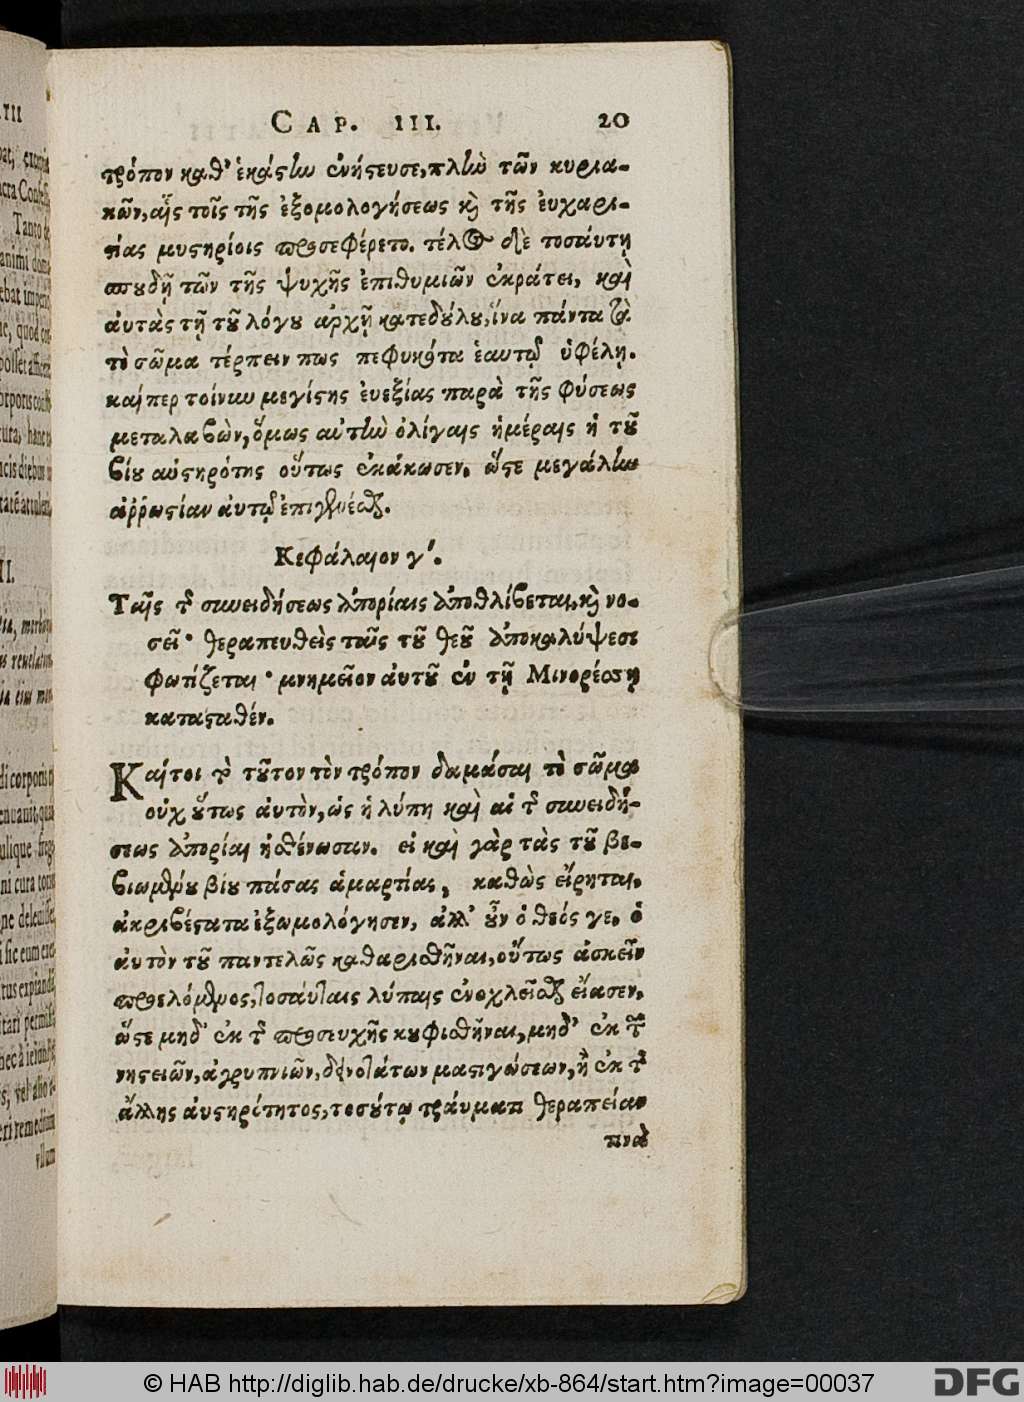 CAP. III. 20
τρόπον καθ' ἑκάστίω ἐνήστευσε, πλίω τῶν κυρια-
κῶν, αἷς τοῖς τῆς ἐξομολογήσεως κỳ τῆς ἐυχαρι-
στίας μυστηρίοις προσεφέρετο. τέλος δὲ τοσάυτῃ
σπουδῇ τῶν τῆς ψυχῆς ἐπιθυμιῶν ἐκράτει, καὶ
ἀυτὰς τῇ τοῦ λόγου ἀρχῇ κατεδούλου, ἵνα πάντα τὰ
τὸ σῶμα τέρπειν πως πεφυκότα ἑαυτῷ ὑφέλῃ.
καίπερ τοίνυν μεγίστης ἐυεξίας παρὰ τῆς φύσεως
μεταλαβὼν, ὅμως αὐτίω ὀλίγαις ἡμέραις ἡ τοῦ
βίου αὐστηρότης οὕτως ἐκάκωσεν. ὥστε μεγάλίω
ἀῤῥωστίαν ἀυτῷ ἐπιγενέσθαι.
Κεφάλαιον γ'.
Ταῖς τ συνειδήσεως ἀπορίαις ἀποθλίβεται, κỳ νο-
σεῖ· θεραπευθεὶς ταῖς τοῦ θεοῦ ἀποκαλύψεσι
φωτίζεται· μνημεῖον ἀυτοῦ ἐν τῇ Μινορέσῃ
κατασταθέν.
Καίτοι τὸ τοῦτον τὸν τρόπον δαμάσαι τὸ σῶμα
οὐχ οὕτως ἀυτὸν, ὡς ἡ λύπη καὶ αἱ τ συνειδή-
σεως ἀπορίαι ἠσθένωσαν. εἰ καὶ γὰρ τὰς τοῦ βε-
βιωμένου βίου πάσας ἁμαρτίας, καθὼς εἴρηται,
ἀκριβέστατα ἐξωμολόγησεν, ἀλλ' οὖν ὁ θεός γε, ὁ
ἀυτὸν τοῦ παντελῶς καθαρισθῆναι, οὕτως ἀσκεῖν
προελόμενος, τοσάυταις λύπαις ἐνοχλεῖσθαι εἴασεν,
ὥστε μηδ' ἐκ τ προσευχῆς κουφισθῆναι, μηδ' ἐκ τ
νηστειῶν, ἀγρυπνιῶν, δεινοτάτων μαστιγώσεων, ἢ ἐκ τ
ἄλλης ἀυστηρότητος, τοσούτῳ τράυματι θεραπείαν
τινὰ
© HAB http://diglib.hab.de/drucke/xb-864/start.htm?image=00037
DFG